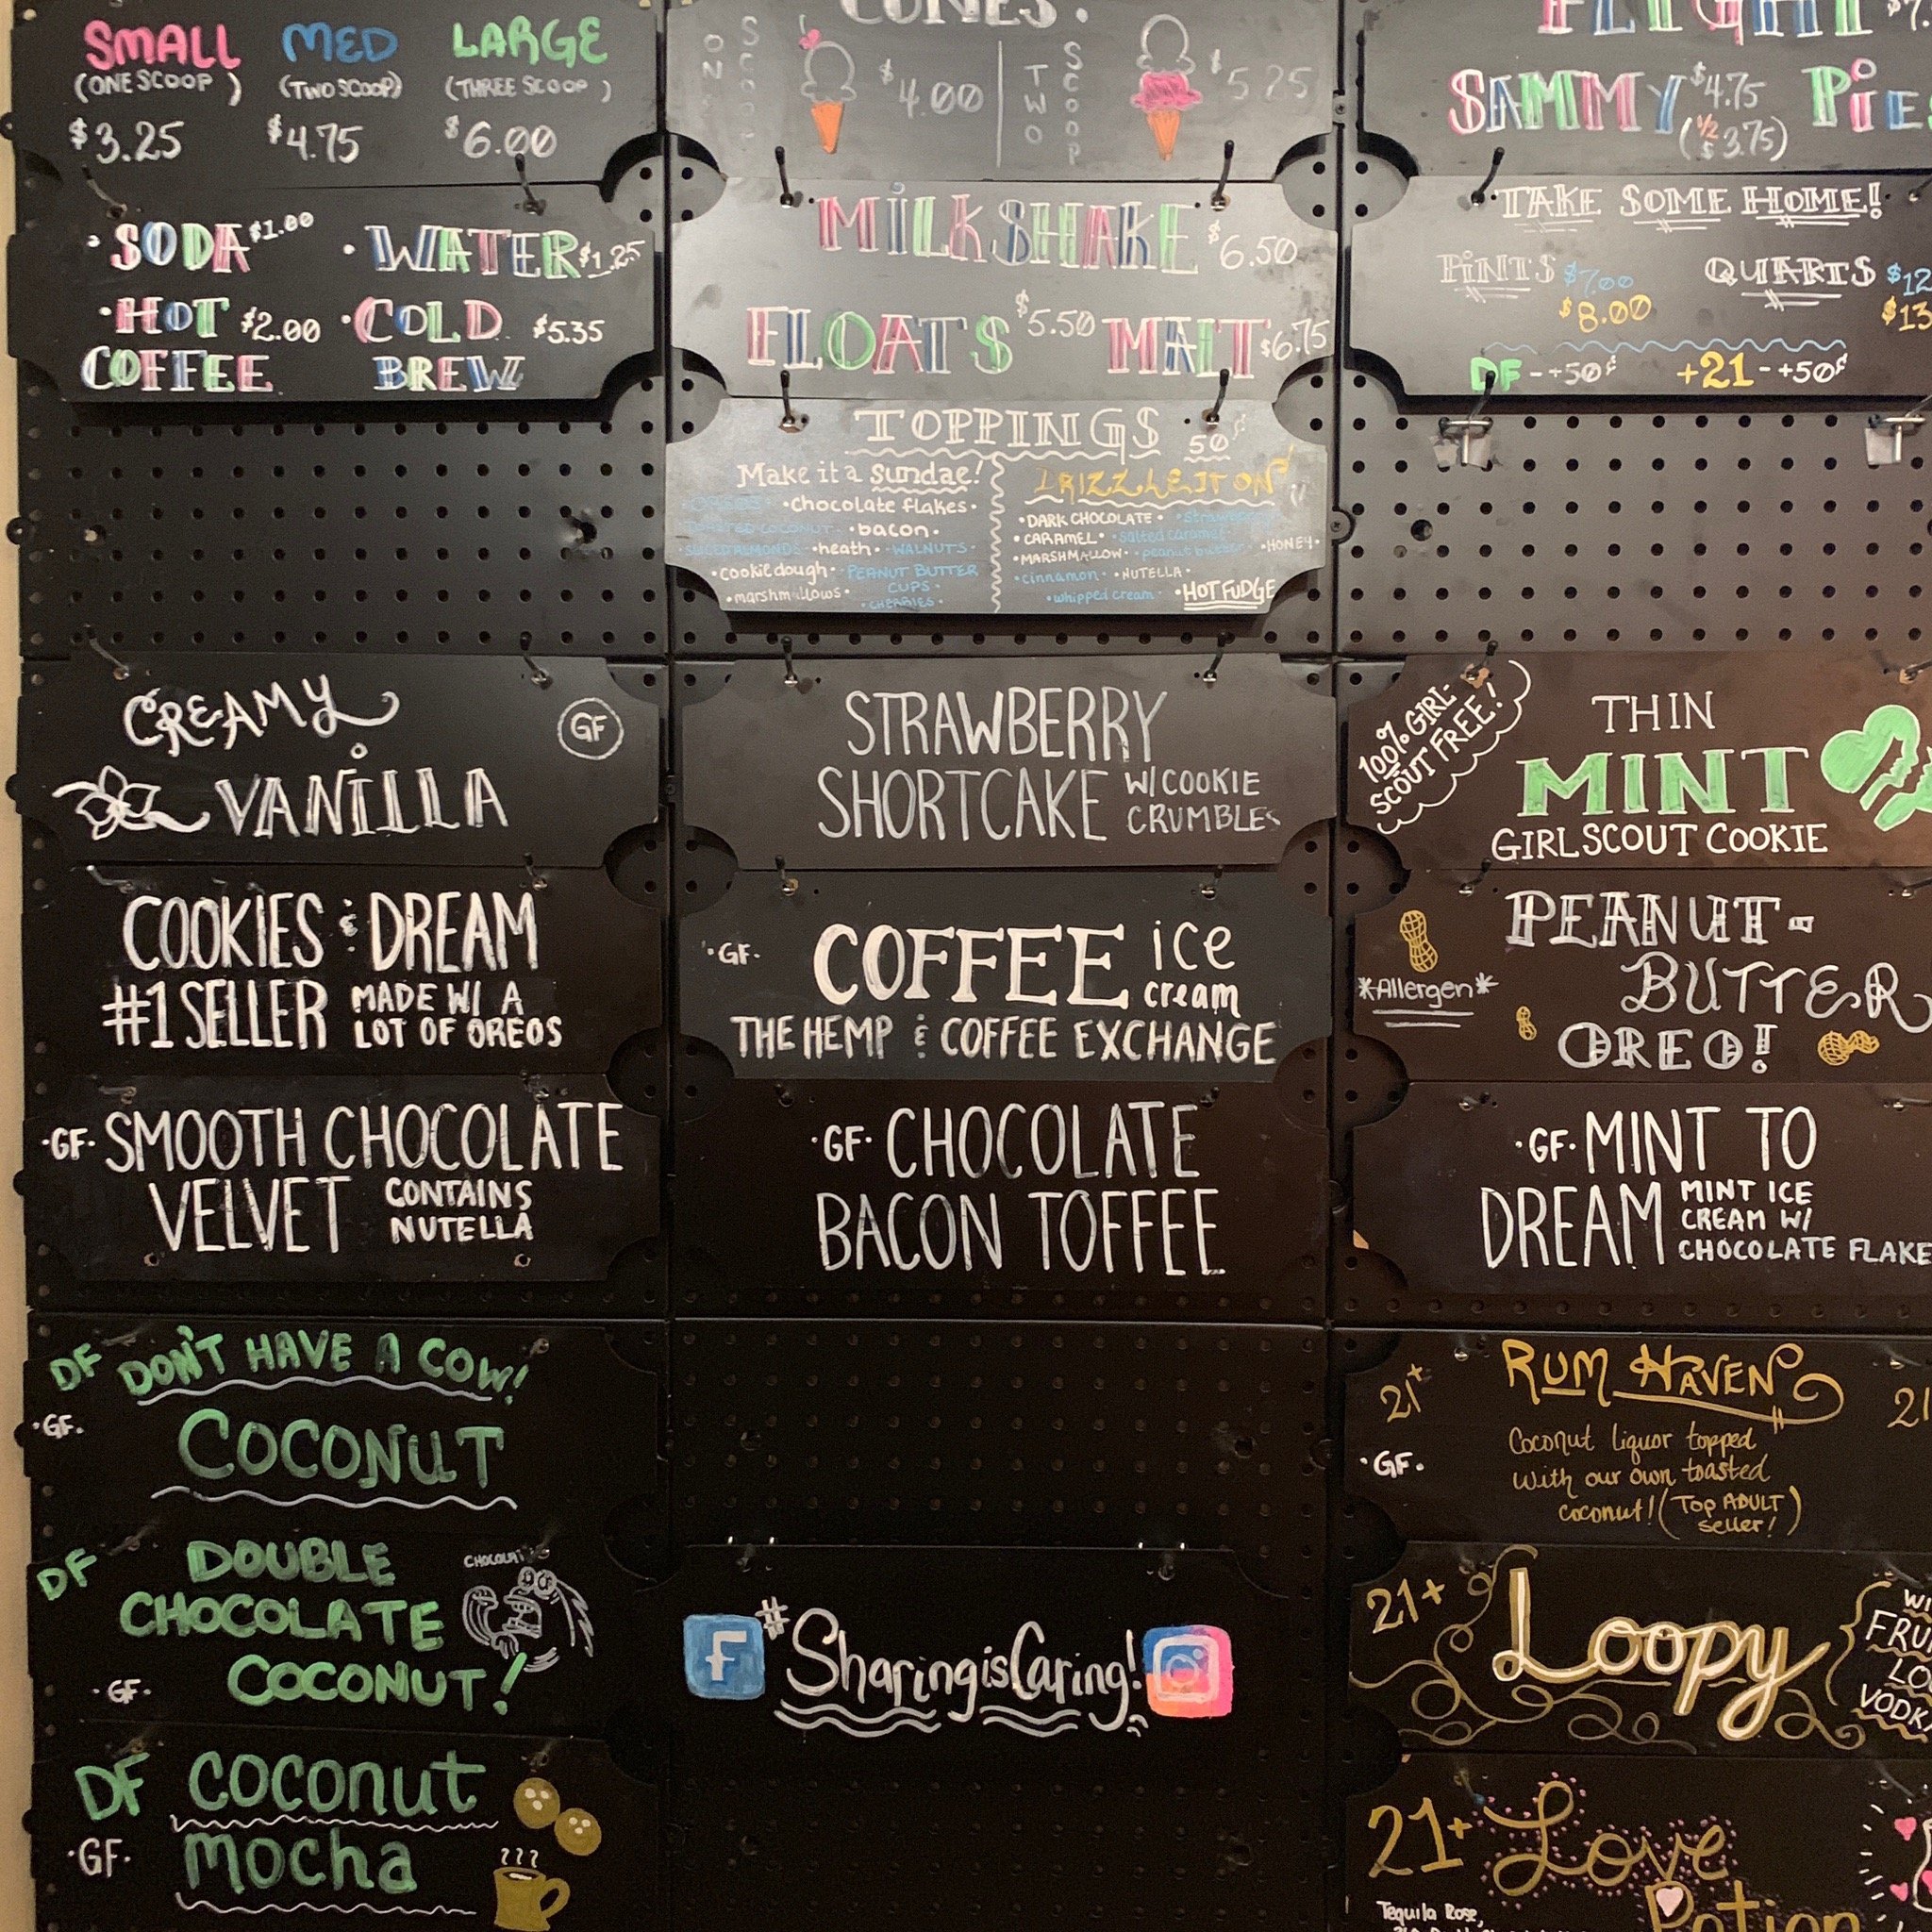 SMALL MED LARGE
(ONE SCOOP) (TWO SCOOP) (THREE SCOOP)
$3.25 $4.75 $6.00
• SODA $1.00 • WATER $1.25
• HOT $2.00 • COLD $5.35
COFFEE BREW
CONES.
ONE SCOOP $4.00 TWO SCOOP $5.25
MILKSHAKE $6.50
FLOATS $5.50 MALT $6.75
TOPPINGS 50¢
Make it a sundae!
• chocolate flakes •
TOASTED COCONUT • bacon •
• SLICED ALMONDS • heath • WALNUTS •
• cookie dough • PEANUT BUTTER
CUPS •
• marshmallows •
• CHERRIES •
DRIZZLE IT ON
• DARK CHOCOLATE • strawberry
• CARAMEL • salted caramel •
• MARSHMALLOW • peanut butter • HONEY •
• cinnamon • • NUTELLA •
• whipped cream • • HOT FUDGE
FLIGHT
SAMMY $4.75
(1/2 $3.75)
TAKE SOME HOME!
PINTS $7.00 QUARTS $12
$8.00 $13
DF - +50¢ +21 - +50¢
CREAMY
VANILLA
GF
COOKIES & DREAM
#1 SELLER MADE W/ A
LOT OF OREOS
•GF• SMOOTH CHOCOLATE
VELVET CONTAINS
NUTELLA
STRAWBERRY
SHORTCAKE W/ COOKIE
CRUMBLES
•GF• COFFEE ice
cream
THE HEMP & COFFEE EXCHANGE
•GF• CHOCOLATE
BACON TOFFEE
100% GIRL-
SCOUT FREE!
THIN
MINT
GIRLSCOUT COOKIE
PEANUT-
BUTTER
OREO!
*Allergen*
•GF• MINT TO
DREAM MINT ICE
CREAM W/
CHOCOLATE FLAKE
DF DON'T HAVE A COW!
•GF•
COCONUT
DF DOUBLE
CHOCOLATE
COCONUT!
•GF•
DF coconut
•GF• mocha
#SharingisCaring!
21+ RUM HAVEN 21
•GF•
Coconut liquor topped
with our own toasted
coconut! (Top ADULT
seller!)
21+ Loopy
21+ Love
Potion
Tequila Rose,